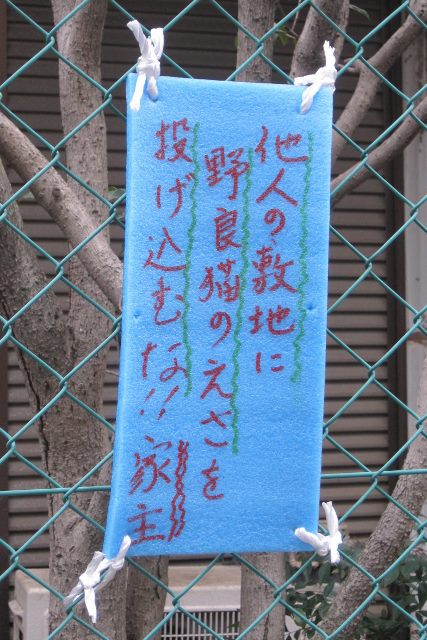 他人の敷地に
野良猫のえさを
投げ込むな!!
家主